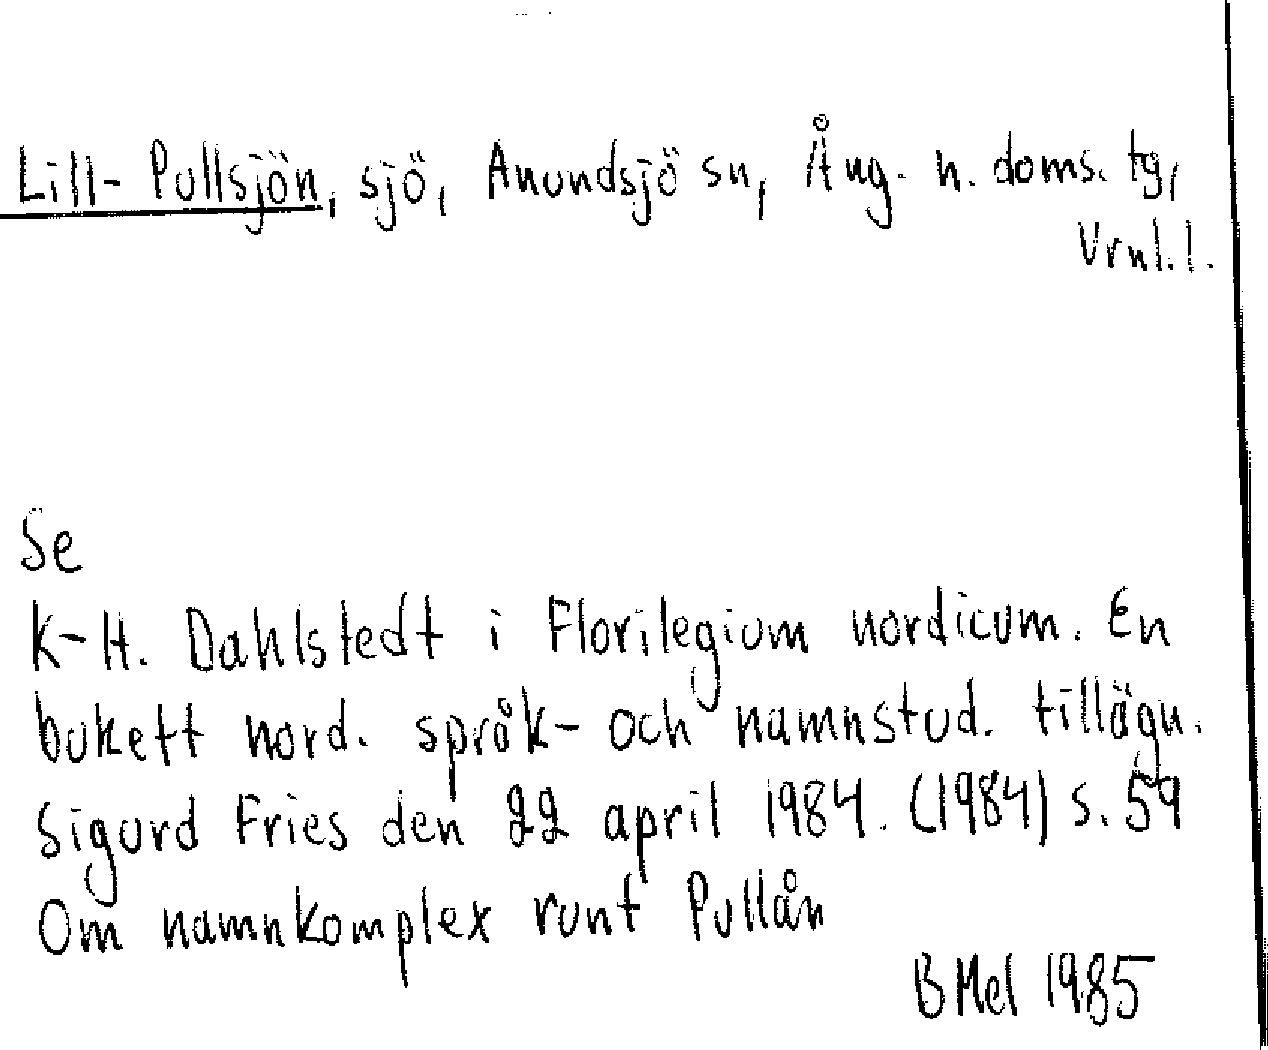 Lill-Pullsjön, sjö, Anundsjö sn, Ång. n. doms. tg,
Vrnl.l.
Se
K-H. Dahlstedt i Florilegium nordicum. En
bukett nord. språk- och namnstud. tillägn.
Sigurd Fries den 22 april 1984. (1984) s. 59
Om namnkomplex runt Pullån
B Mel 1985